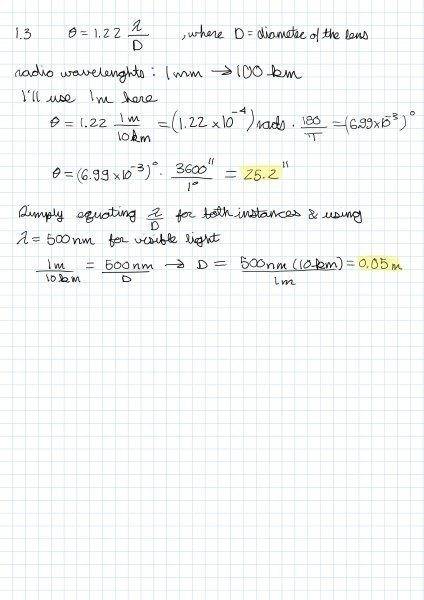 1.3 θ = 1.22 λ/D , where D = diameter of the lens
radio wavelenghts : 1 mm → 100 km
I'll use 1m here
θ = 1.22 1m/10km = (1.22 × 10⁻⁴) rads · 180/π = (6.99 × 10⁻³)°
θ = (6.99 × 10⁻³)° · 3600"/1° = 25.2"
Simply equating λ/D for both instances & using
λ = 500 nm for visible light
1m/10km = 500nm/D → D = 500nm (10km)/1m = 0.05 m